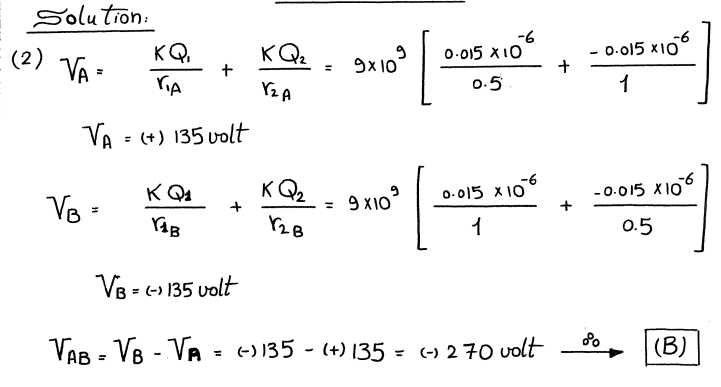 Solution:
(2) V_A = KQ₁/r₁A + KQ₂/r₂A = 9×10⁹ [ 0.015 ×10⁻⁶/0.5 + -0.015 ×10⁻⁶/1 ]
V_A = (+) 135 volt
V_B = KQ1/r1B + KQ₂/r₂B = 9×10⁹ [ 0.015 ×10⁻⁶/1 + -0.015 ×10⁻⁶/0.5 ]
V_B = (-) 135 volt
V_AB = V_B - V_A = (-) 135 - (+) 135 = (-) 270 volt → (B)